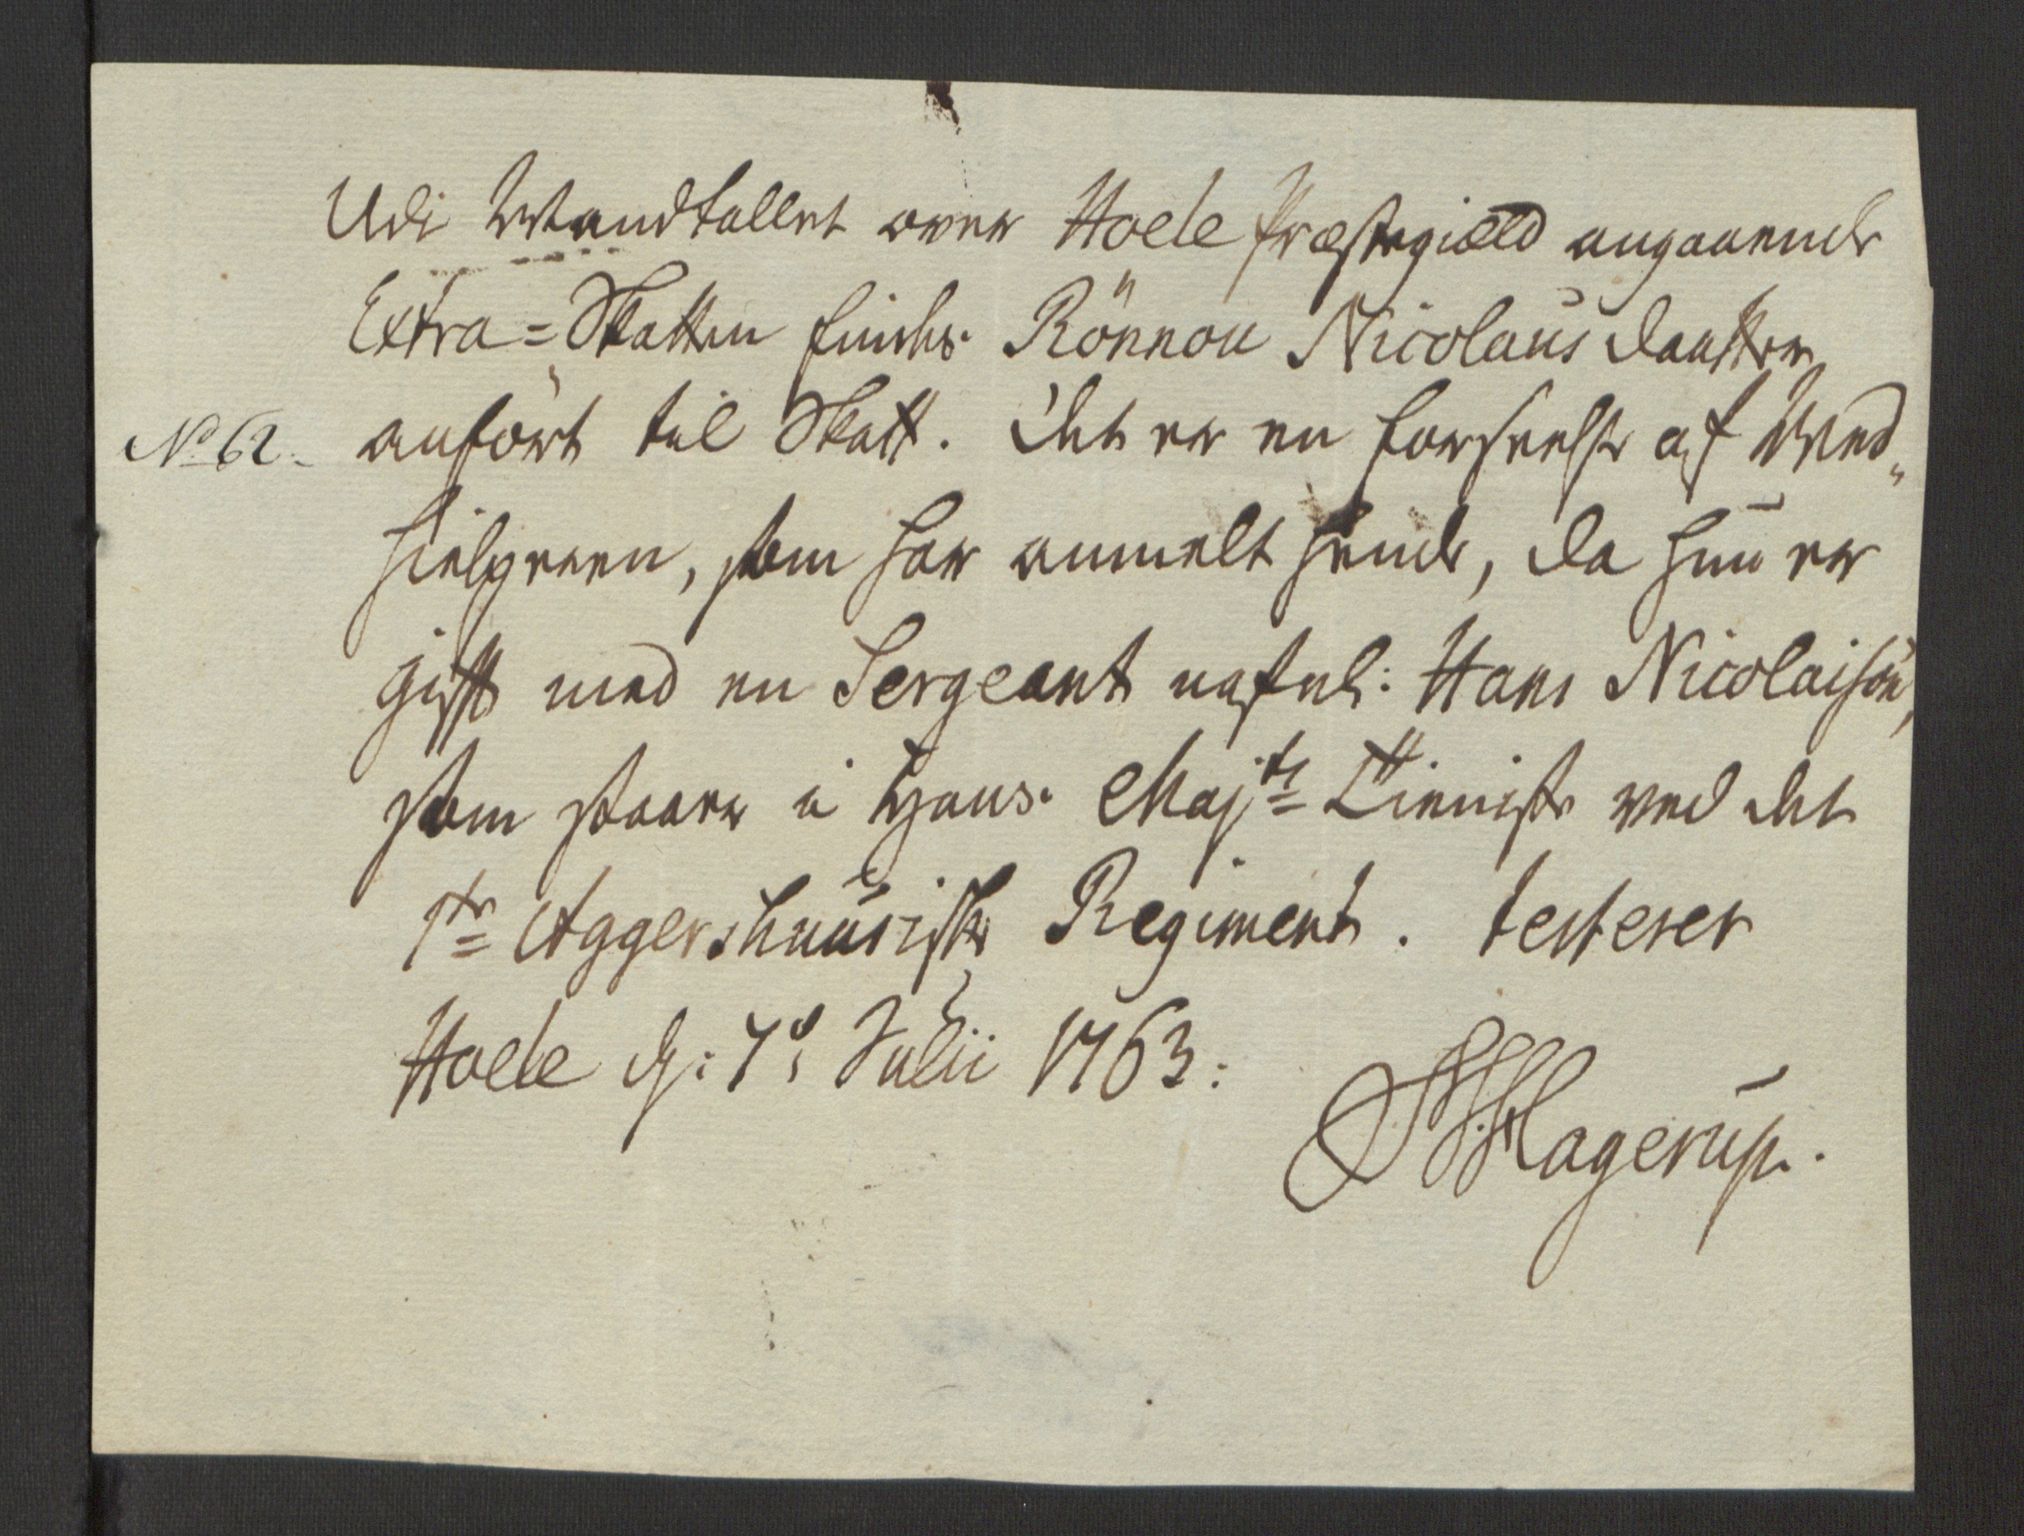 Udi Mandtallet over Hoele Præstegield angaaende
Extra=Skatten findes Rönnou Nicolaus daatter
No 62. anført til Skatt. Det er en forseelse af Med„
hielperen, som har anmelt hende, da hun er
gift med en Sergeant nafnl: Hans Nicolaisön,
som staaer i Hans Majts Tieniste ved det
1te Aggershuusiske Regiment. testerer
Hoele d: 7de Julii 1763:
Hagerup.